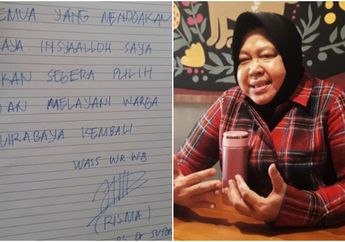 SEMUA YANG MENDOAKAN
SAYA INSYAALLOH SAYA
AKAN SEGERA PULIH
DAN MELAYANI WARGA
SURABAYA KEMBALI
WASS WR WB
(RISMA)